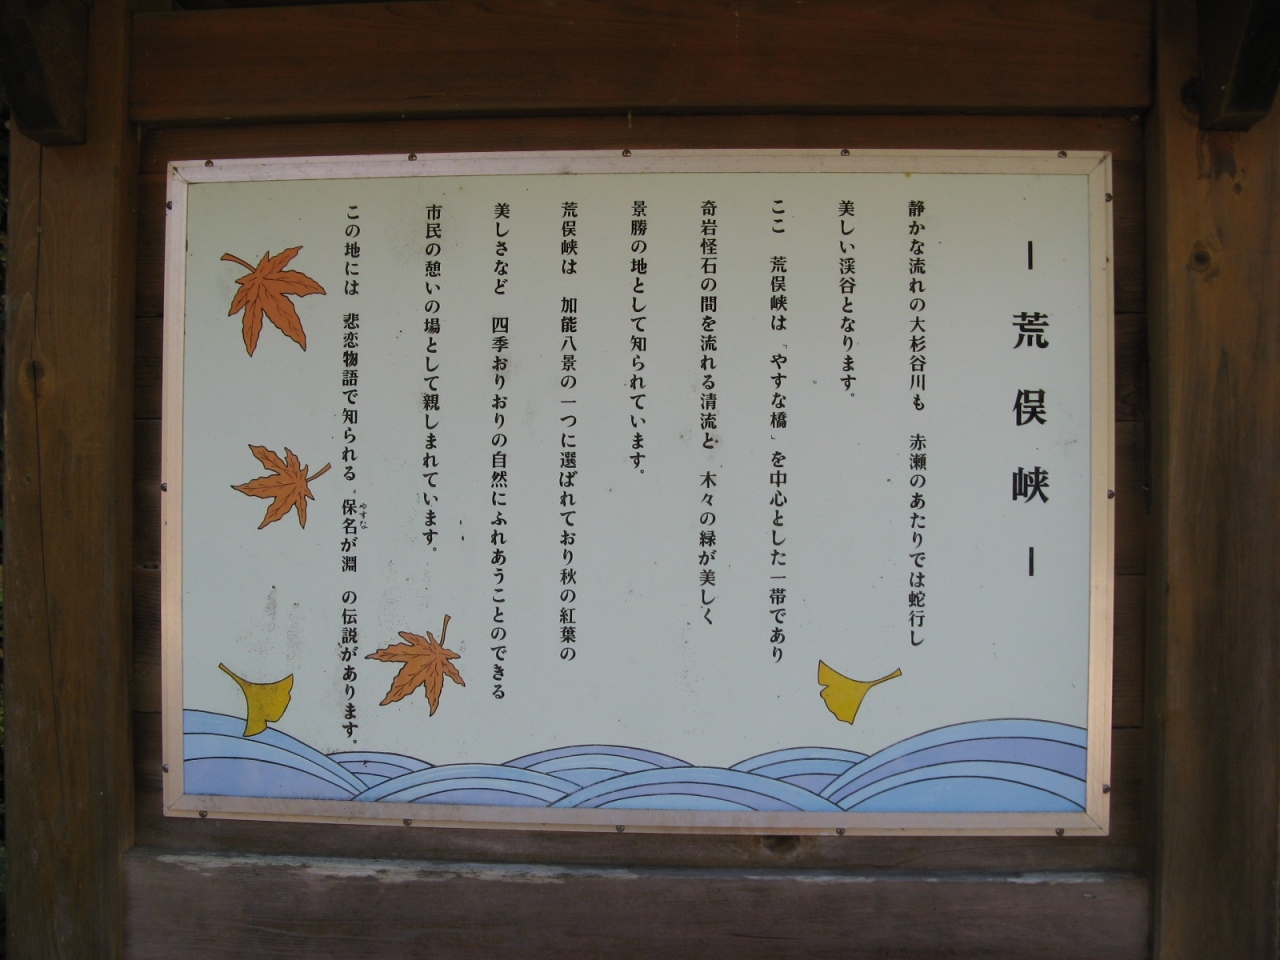 ― 荒俣峡 ―
静かな流れの大杉谷川も 赤瀬のあたりでは蛇行し
美しい渓谷となります。
ここ 荒俣峡は「やすな橋」を中心とした一帯であり
奇岩怪石の間を流れる清流と 木々の緑が美しく
景勝の地として知られています。
荒俣峡は 加能八景の一つに選ばれており秋の紅葉の
美しさなど 四季おりおりの自然にふれあうことのできる
市民の憩いの場として親しまれています。
この地には 悲恋物語で知られる 保名が淵 の伝説があります。
やすな